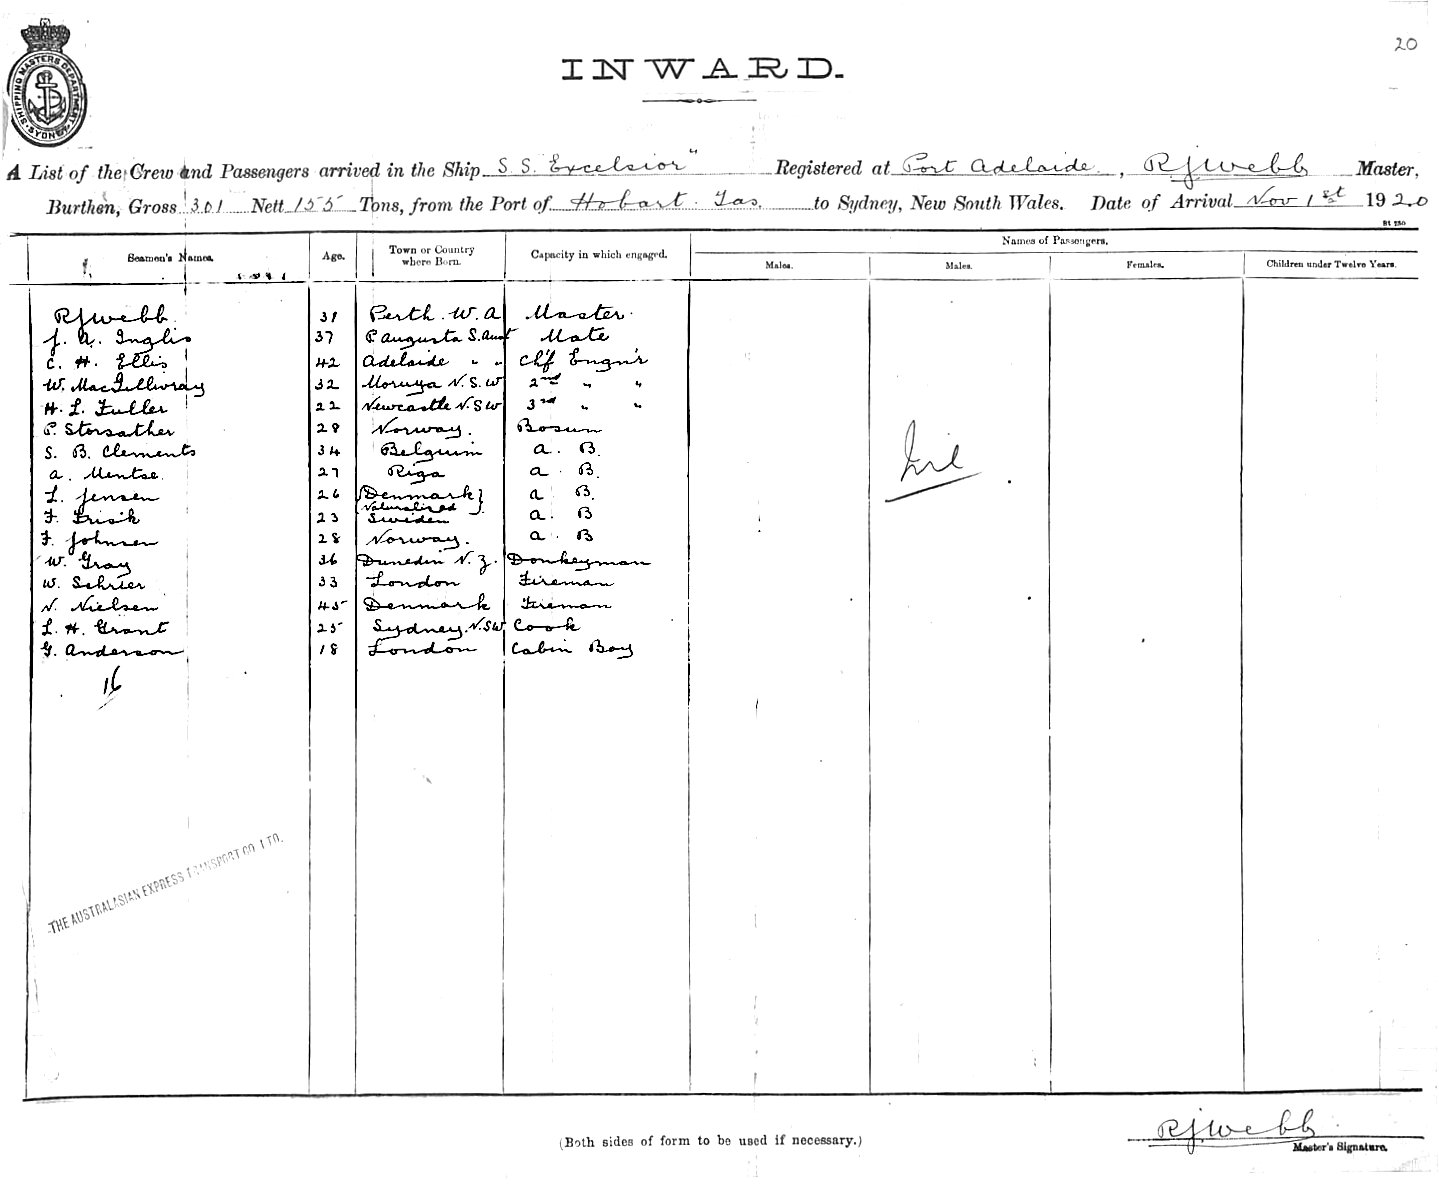 20
SHIPPING MASTERS DEPARTMENT SYDNEY
INWARD.
A List of the Crew and Passengers arrived in the Ship S S. Excelsior" Registered at Port Adelaide, R J Webb Master,
Burthen, Gross 301 Nett 155 Tons, from the Port of Hobart Tas. to Sydney, New South Wales. Date of Arrival Nov 1st 1920
Seamen's Names. Age. Town or Country where Born. Capacity in which engaged. Names of Passengers.
Males. Males. Females. Children under Twelve Years.
R J Webb 31 Perth. W. A Master
J. A. Inglis 37 P Augusta S. Aust Mate
C. H. Ellis 42 Adelaide " " Chf Engn'r
W. MacGillivray 32 Moruya N. S. W 2nd " "
H. L. Fuller 22 Newcastle N. S W 3rd " "
P. Storsather 28 Norway. Bosun
S. B. Clements 34 Belguim A. B.
A. Mentse 27 Riga A. B.
L. Jensen 26 Denmark A B.
Naturalized
F. Frisk 23 Sweden A. B
F. Johnsen 28 Norway. A. B
W. Gray 36 Dunedin N. Z. Donkeyman
W. Schrier 33 London Fireman
N. Nielsen 45 Denmark Fireman
L. H. Grant 25 Sydney. N. SW Cook
G. Anderson 18 London Cabin Boy
16
Nil
THE AUSTRALASIAN EXPRESS TRANSPORT CO. LTD.
R J Webb
(Both sides of form to be used if necessary.)
Master's Signature.